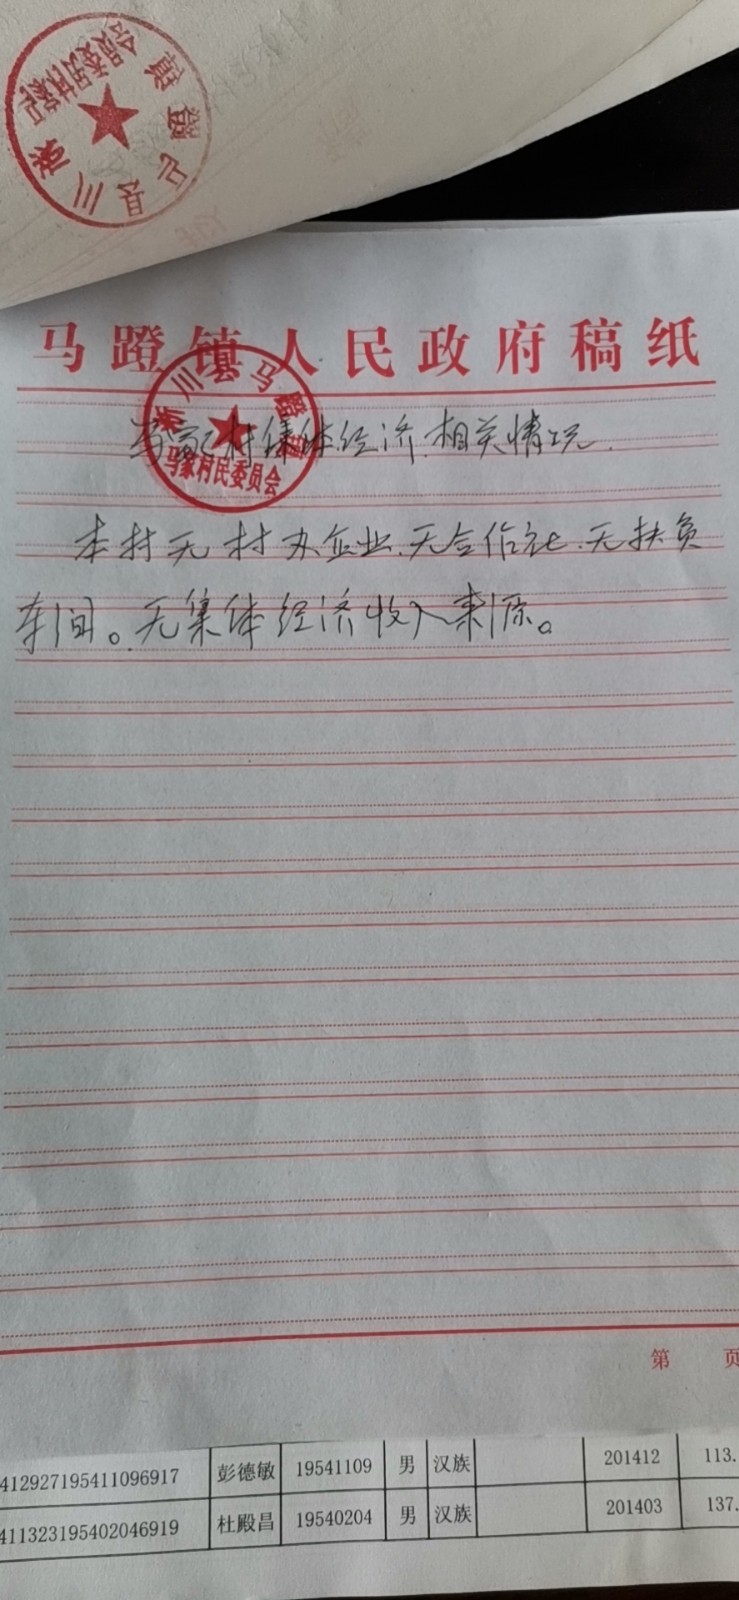 淅川县马蹬镇
马家村民委员会
马蹬镇人民政府稿纸
淅川县马蹬镇
马家村民委员会
马家村集体经济相关情况.
本村无村办企业、无合作社、无扶贫
车间。无集体经济收入来源。
第 页
412927195411096917 彭德敏 19541109 男 汉族 201412 113.
411323195402046919 杜殿昌 19540204 男 汉族 201403 137.